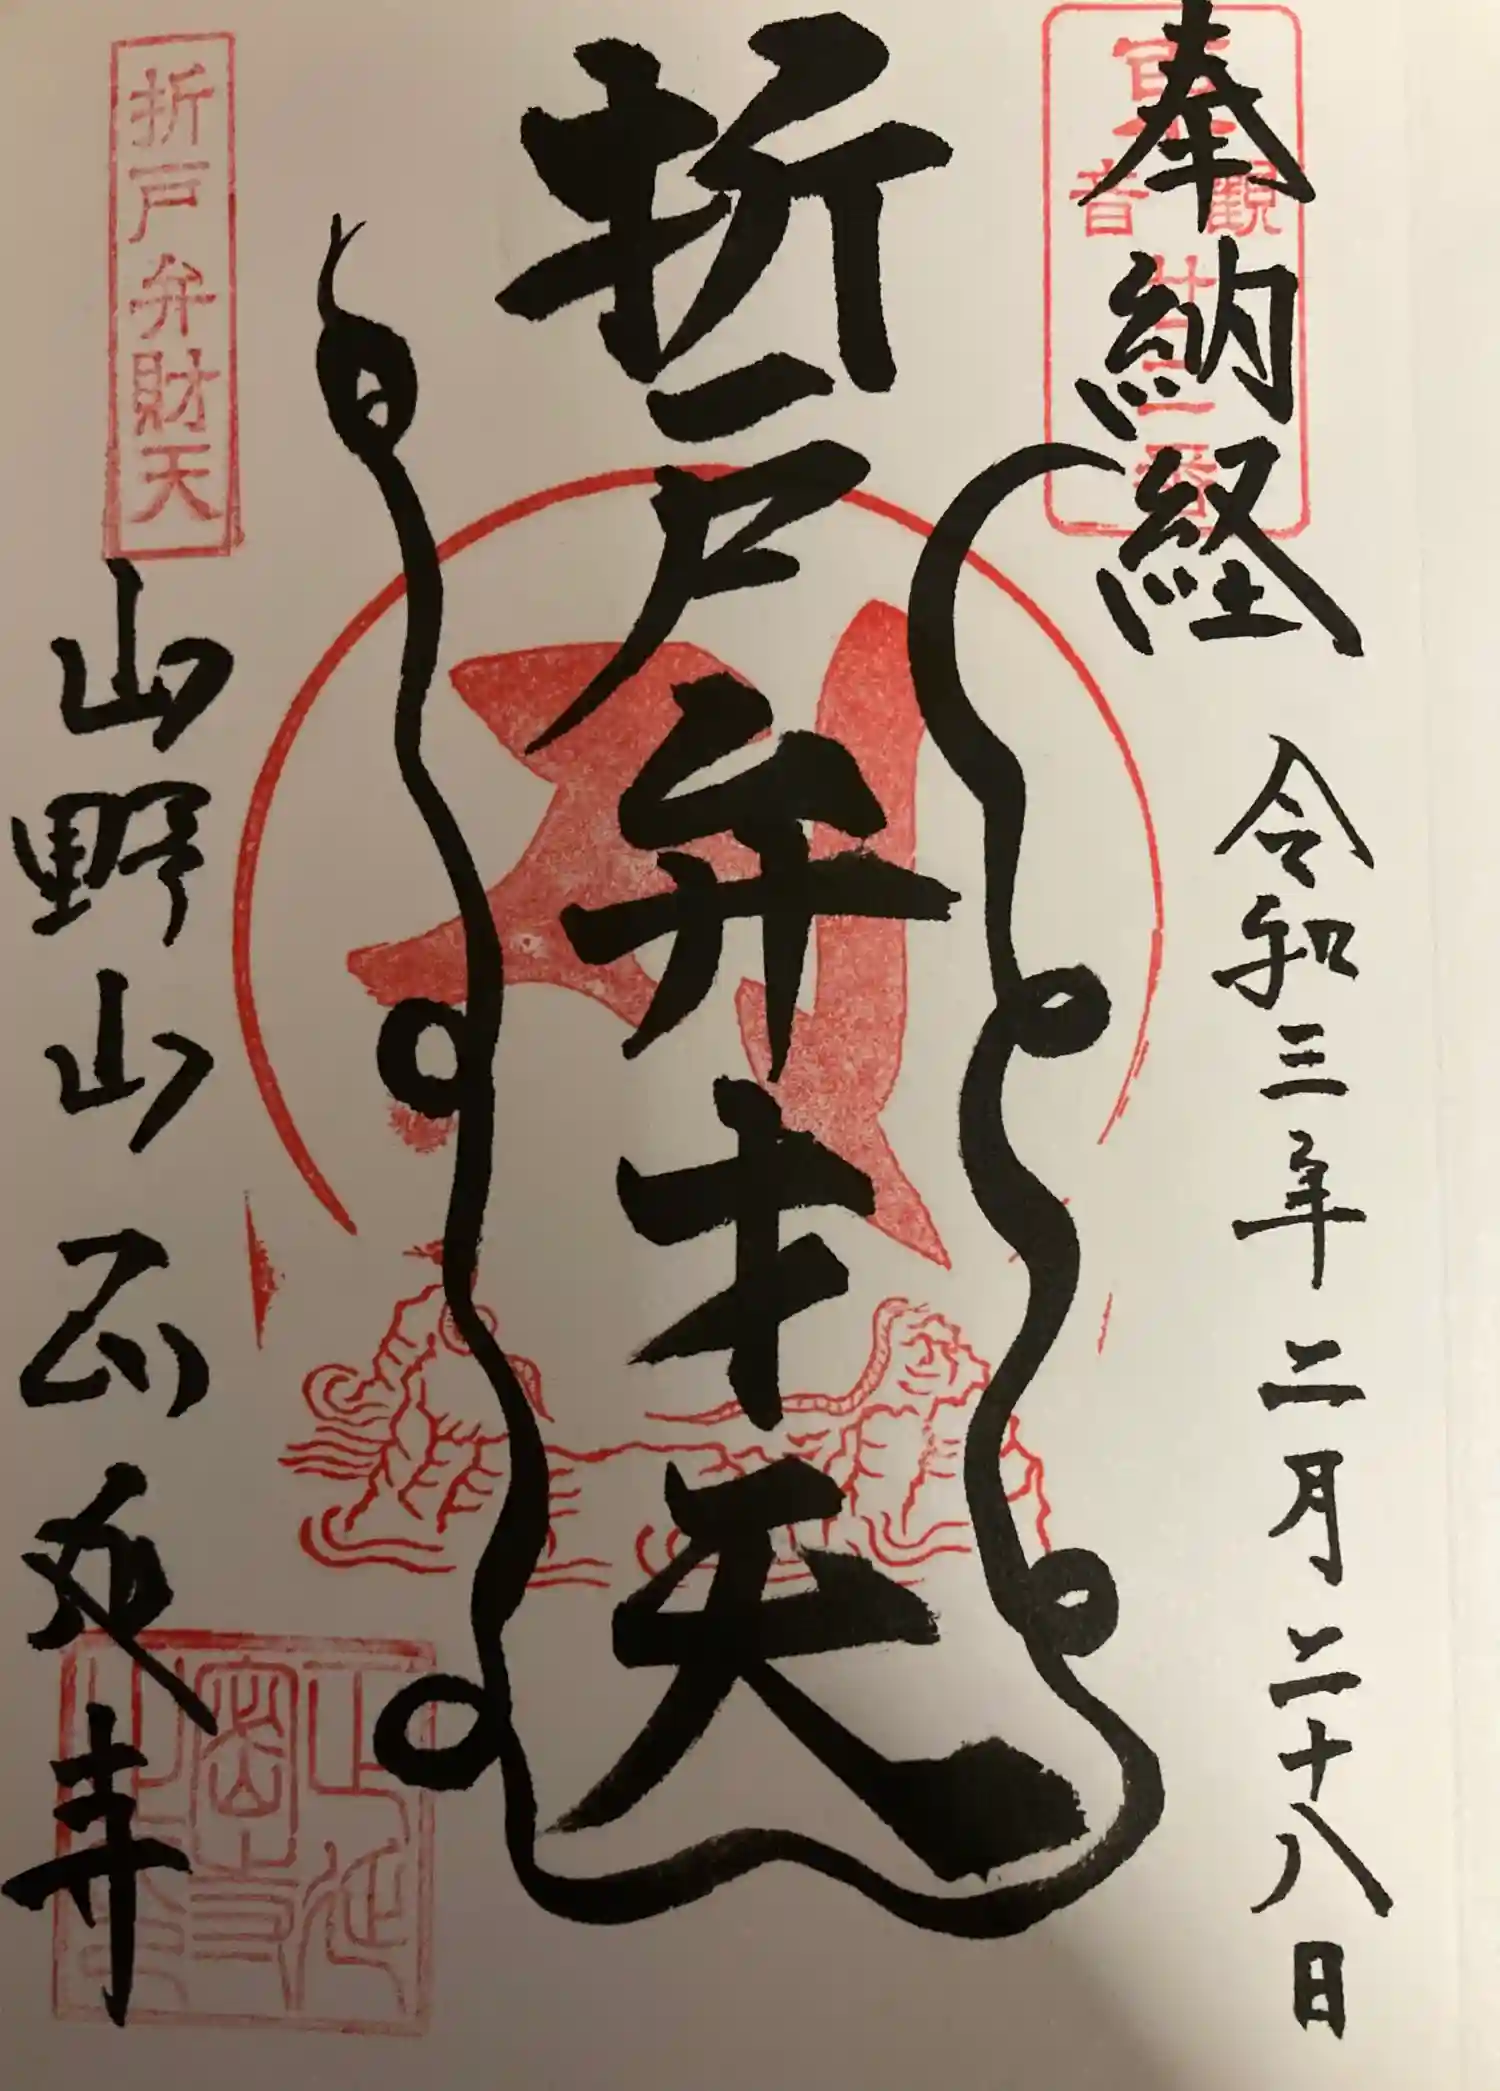 奉納経
令和三年二月二十八日
観音
折戸弁才天
折戸弁財天
山野山正延寺